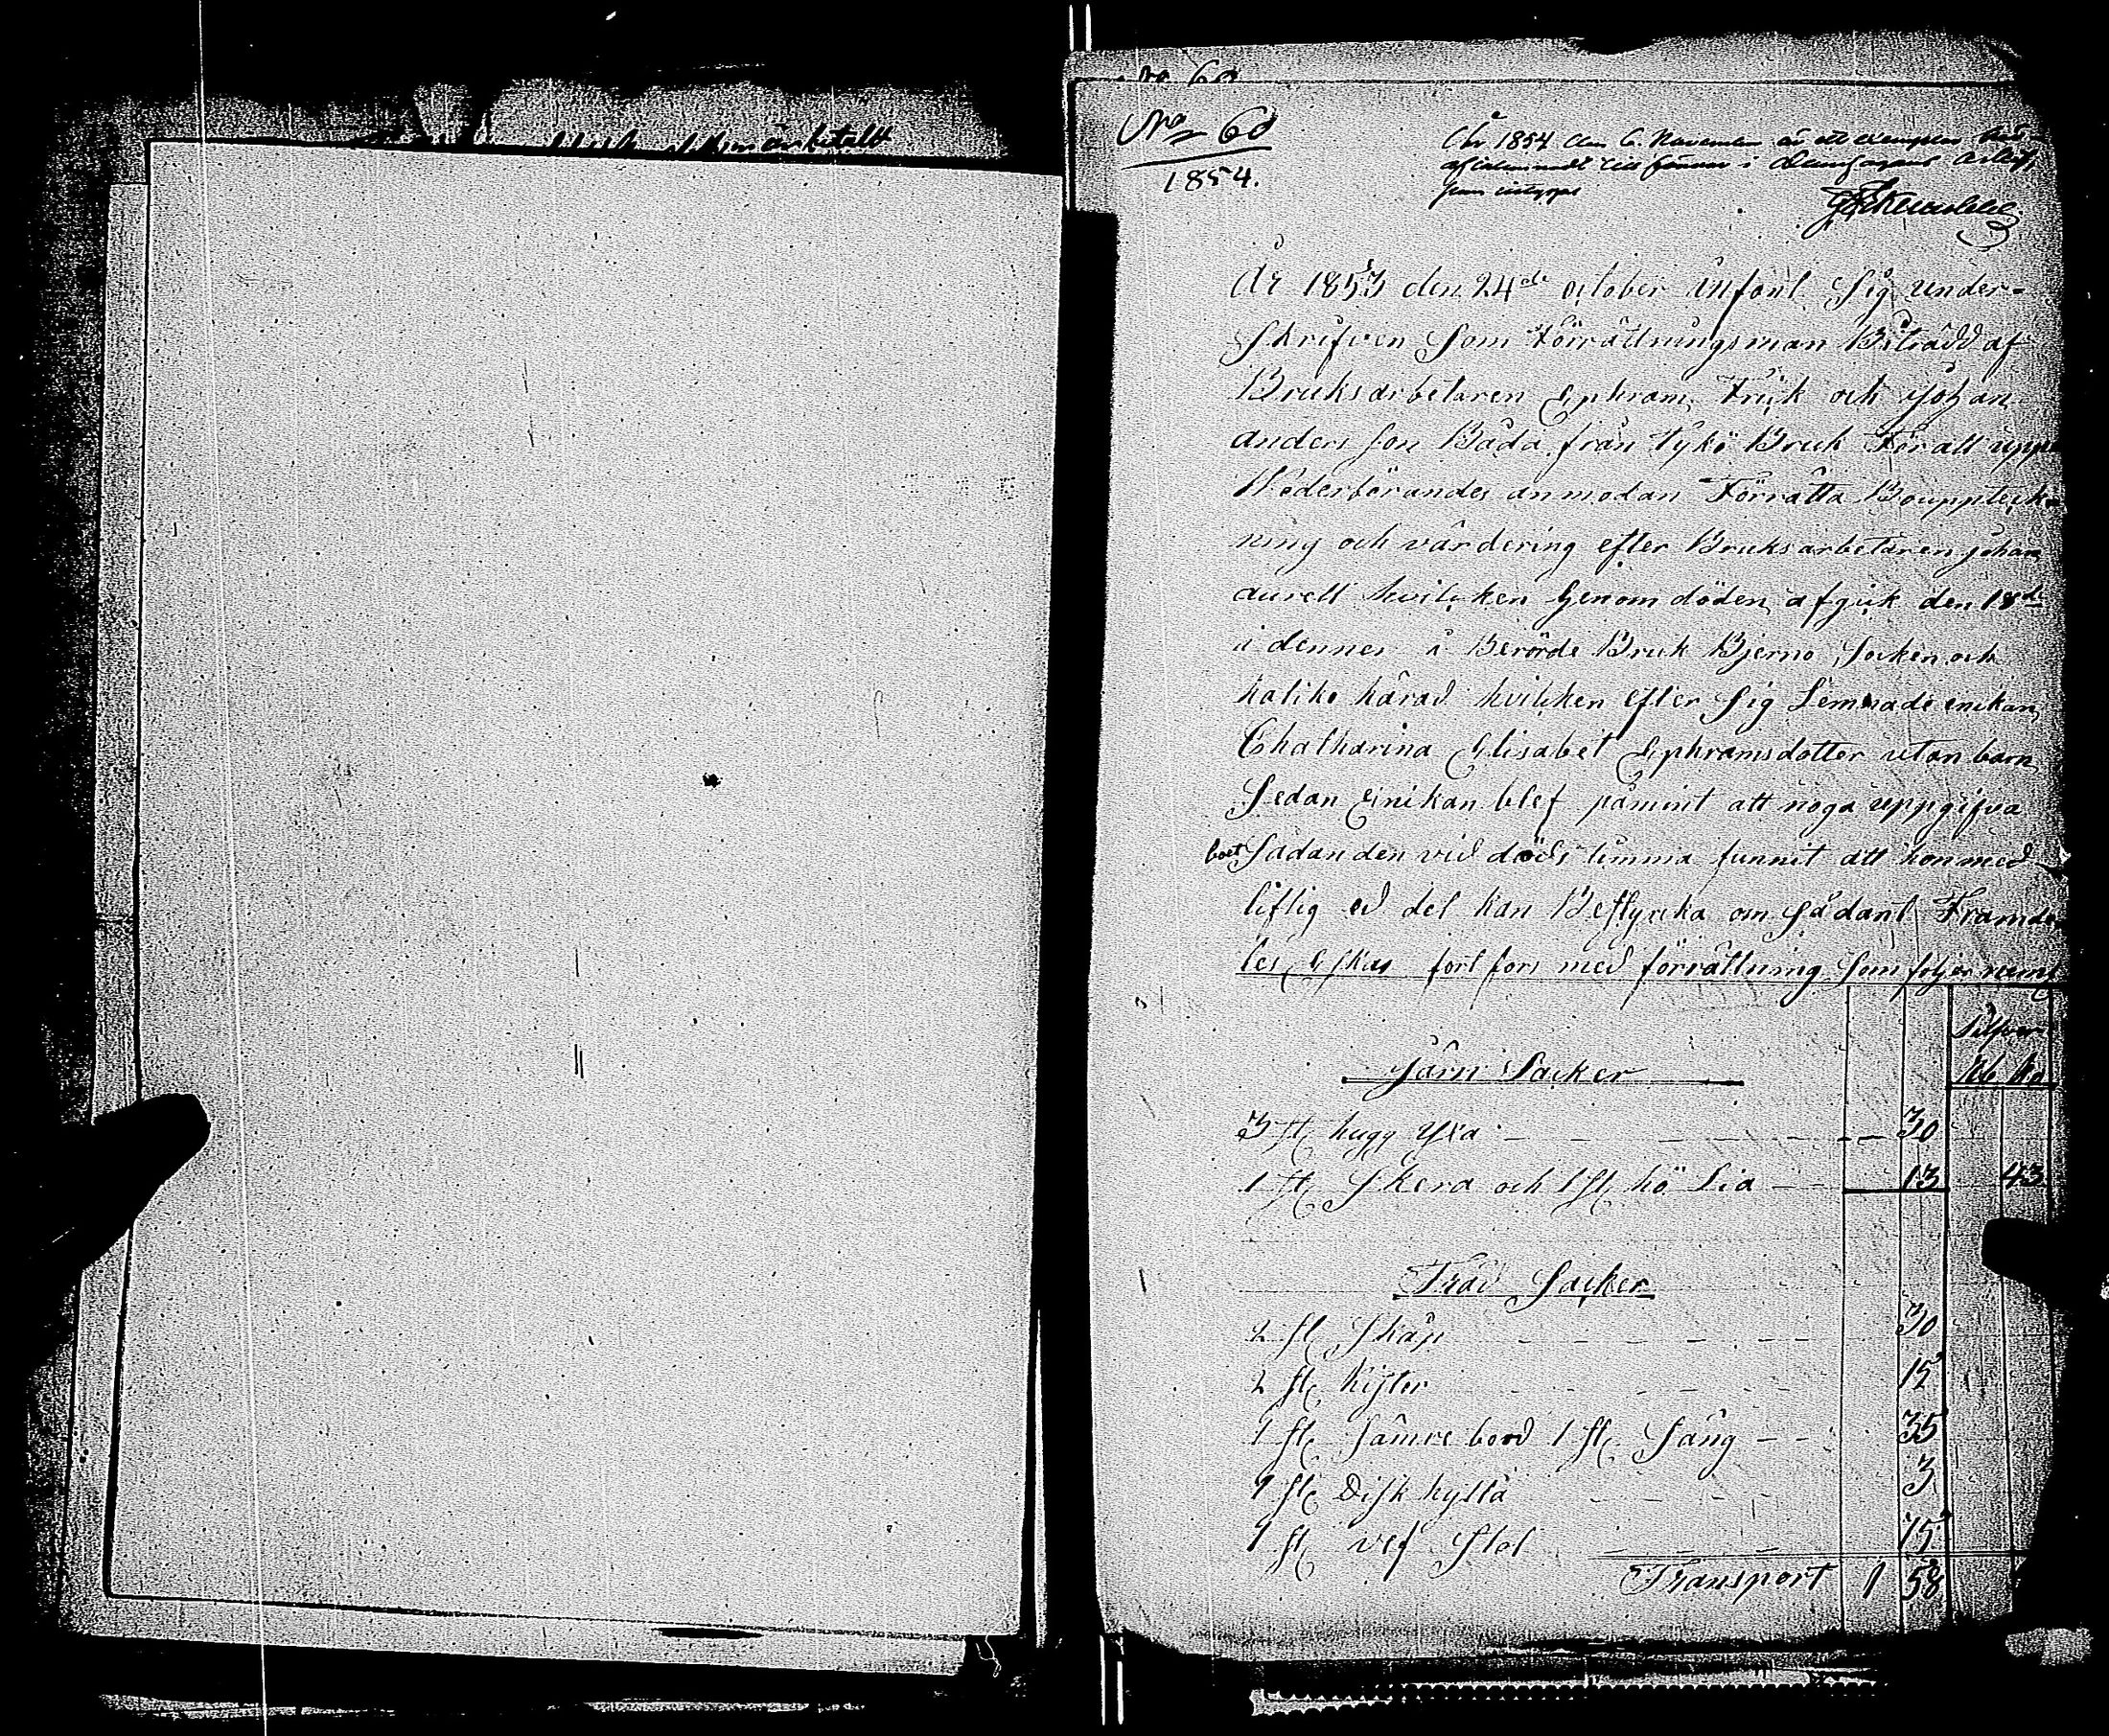 No 60
No 60
1854.
År 1854 den 6. November är ett exemplar
År 1853 den 24de october infant Sig under-
Skrifven Som Förrättningsman Biträdd af
Bruksarbetaren Ephram Frisk och Johan
anders Son Båda från Tykö Bruk För att uppå
Wederbörandes anmodan Förrätta Bouppteck-
ning och värdering efter Bruksarbetaren johan
aurell hvilcken Genom döden afgick den 18de
i dennes i Berörde Bruk Bjerno Socken och
haliko härad hvilcken efter Sig Lemnade enckan
Chatharina Elisabet Ephramsdotter utan barn
Sedan Enikan blef påmint att noga uppgifva
boet Sådan den vid döds timma funnit att hon med
liftlig ed det kan Beftyrcka om Sådant Framde-
les Eskas fort fors med förrättning Som foljer
Silfver
Rb Ko
Järn Sacker
3 st hugg Yxa 30
1 st Skera och 1 st hö Lia 13 43
Träd Sacker
2 st Skåp 30
2 st Kistor 15
1 st Sämre bord 1 st Säng 35
1 st Disk hylla 3
1 st vef Stol 75
Transport 1 58